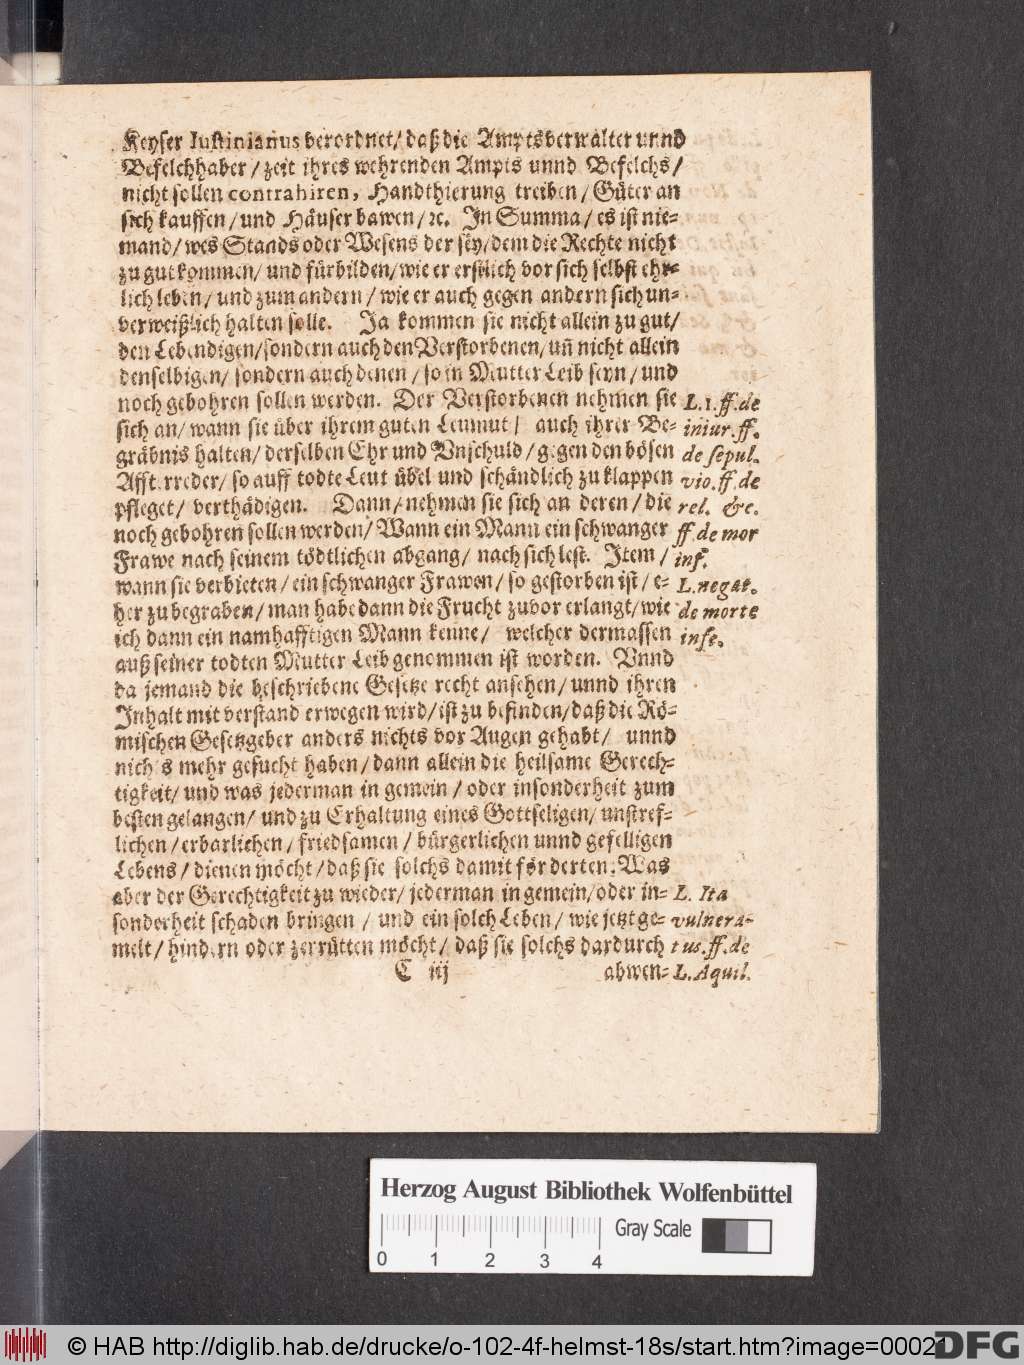 Keyser Iustinianus verordnet/ daß die Amptsverwalter unnd
Befelchhaber / zeit ihres wehrenden Ampts unnd Befelchs /
nicht sollen contrahiren, Handthierung treiben / Güter an
sich kauffen / und Häuser bawen / ꝛc. In Summa / es ist nie-
mand / wes Stands oder Wesens der sey / dem die Rechte nicht
zu gut kommen / und fürbilden / wie er erstlich vor sich selbst ehr-
lich leben / und zum andern / wie er auch gegen andern sich un-
verweißlich halten solle. Ja kommen sie nicht allein zu gut /
den Lebendigen / sondern auch den Verstorbenen / uñ nicht allein
denselbigen / sondern auch denen / so in Mutter Leib seyn / und
noch gebohren sollen werden. Der Verstorbenen nehmen sie
sich an / wann sie über ihrem guten Leumut / auch ihrer Be-
gräbnis halten / derselben Ehr und Vnschuld / gegen den bösen
Affterreder / so auff todte Leut übel und schändlich zu klappen
pfleget / verthädigen. Dann / nehmen sie sich an deren / die
noch gebohren sollen werden / Wann ein Mann ein schwanger
Frawe nach seinem tödtlichen abgang / nach sich lest. Item /
wann sie verbieten / ein schwanger Frawen / so gestorben ist / e-
her zu begraben / man habe dann die Frucht zuvor erlangt / wie
ich dann ein namhafftigen Mann kenne / welcher dermassen
auß seiner todten Mutter Leib genommen ist worden. Vnnd
da jemand die beschriebene Gesetze recht ansehen / unnd ihren
Inhalt mit verstand erwegen wird / ist zu befinden / daß die Rö-
mischen Gesetzgeber anders nichts vor Augen gehabt / unnd
nichts mehr gesucht haben / dann allein die heilsame Gerech-
tigkeit / und was jederman in gemein / oder insonderheit zum
besten gelangen / und zu Erhaltung eines Gottseligen / unstref-
lichen / erbarlichen / friedsamen / bürgerlichen unnd geselligen
Lebens / dienen möcht / daß sie solchs damit förderten. Was
aber der Gerechtigkeit zu wieder / jederman in gemein / oder in-
sonderheit schaden bringen / und ein solch Leben / wie jetzt ge-
melt / hindern oder zerrütten möcht / daß sie solchs dardurch
C iij abwen-
L. 1. ff. de
iniur. ff.
de sepul.
vio. ff. de
rel. &c.
ff. de mor
inf.
L. negat.
de morte
infe.
L. Ita
vulnera-
tus. ff. de
L. Aquil.
Herzog August Bibliothek Wolfenbüttel
Gray Scale
0 1 2 3 4
© HAB http://diglib.hab.de/drucke/o-102-4f-helmst-18s/start.htm?image=00021
DFG